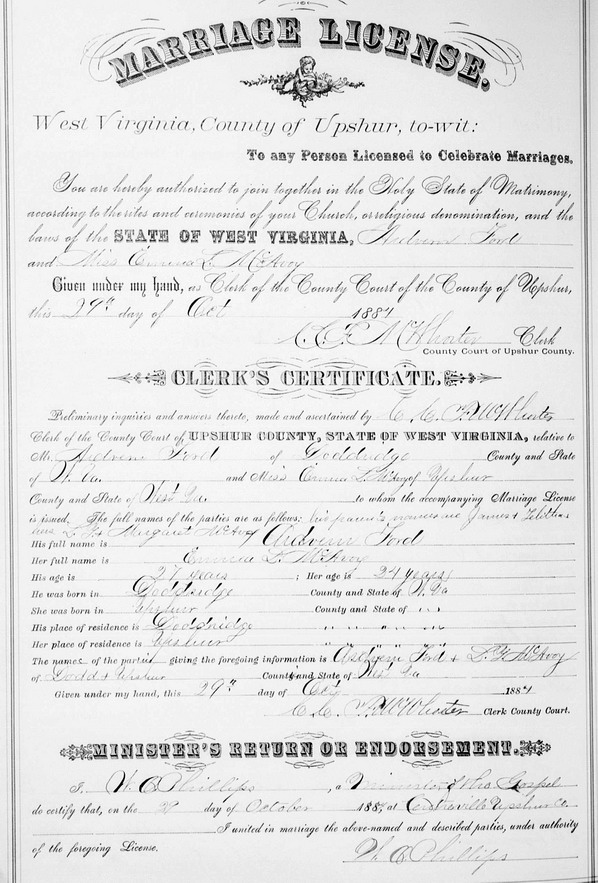 MARRIAGE LICENSE.
West Virginia, County of Upshur, to-wit:
To any Person Licensed to Celebrate Marriages,
You are hereby authorized to join together in the Holy State of Matrimony,
according to the rites and ceremonies of your Church, or religious denomination, and the
laws of the STATE OF WEST VIRGINIA, Ardvern Ford
and Miss Emma L. McAvoy
Given under my hand, as Clerk of the County Court of the County of Upshur,
this 29th day of Oct 1884
McWhorter Clerk
County Court of Upshur County.
CLERK'S CERTIFICATE.
Preliminary inquiries and answers thereto, made and ascertained by McWhorter
Clerk of the County Court of UPSHUR COUNTY, STATE OF WEST VIRGINIA, relative to
Mr. Ardvern Ford of Doddridge County and State
of W. Va. and Miss Emma L. McAvoy of Upshur
County and State of West Va. to whom the accompanying Marriage License
is issued. The full names of the parties are as follows: his parents names are James &
hers & Margaret McAvoy
His full name is Ardvern Ford
Her full name is Emma L. McAvoy
His age is 27 years ; Her age is 24 years
He was born in Doddridge County and State of W. Va
She was born in Upshur County and State of " "
His place of residence is Doddridge " " " " "
Her place of residence is Upshur " " " " "
The names of the parties giving the foregoing information is Ardvern Ford & McAvoy
of Dodd & Upshur County and State of West Va
Given under my hand, this 29th day of Oct 1884
McWhorter Clerk County Court.
MINISTER'S RETURN OR ENDORSEMENT.
I, W. C. Phillips, a minister of the Gospel
do certify that, on the 29 day of October 188 , at Centreville Upshur Co.
I united in marriage the above-named and described parties, under authority
of the foregoing License.
W. C. Phillips